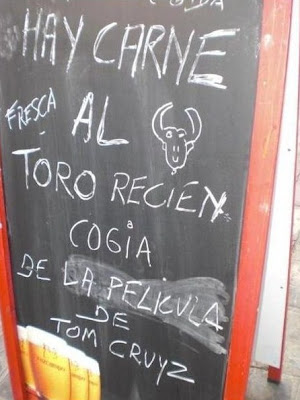 HAY CARNE
FRESCA AL
TORO RECIEN
COGIA
DE LA PELICULA
DE
TOM CRUYZ